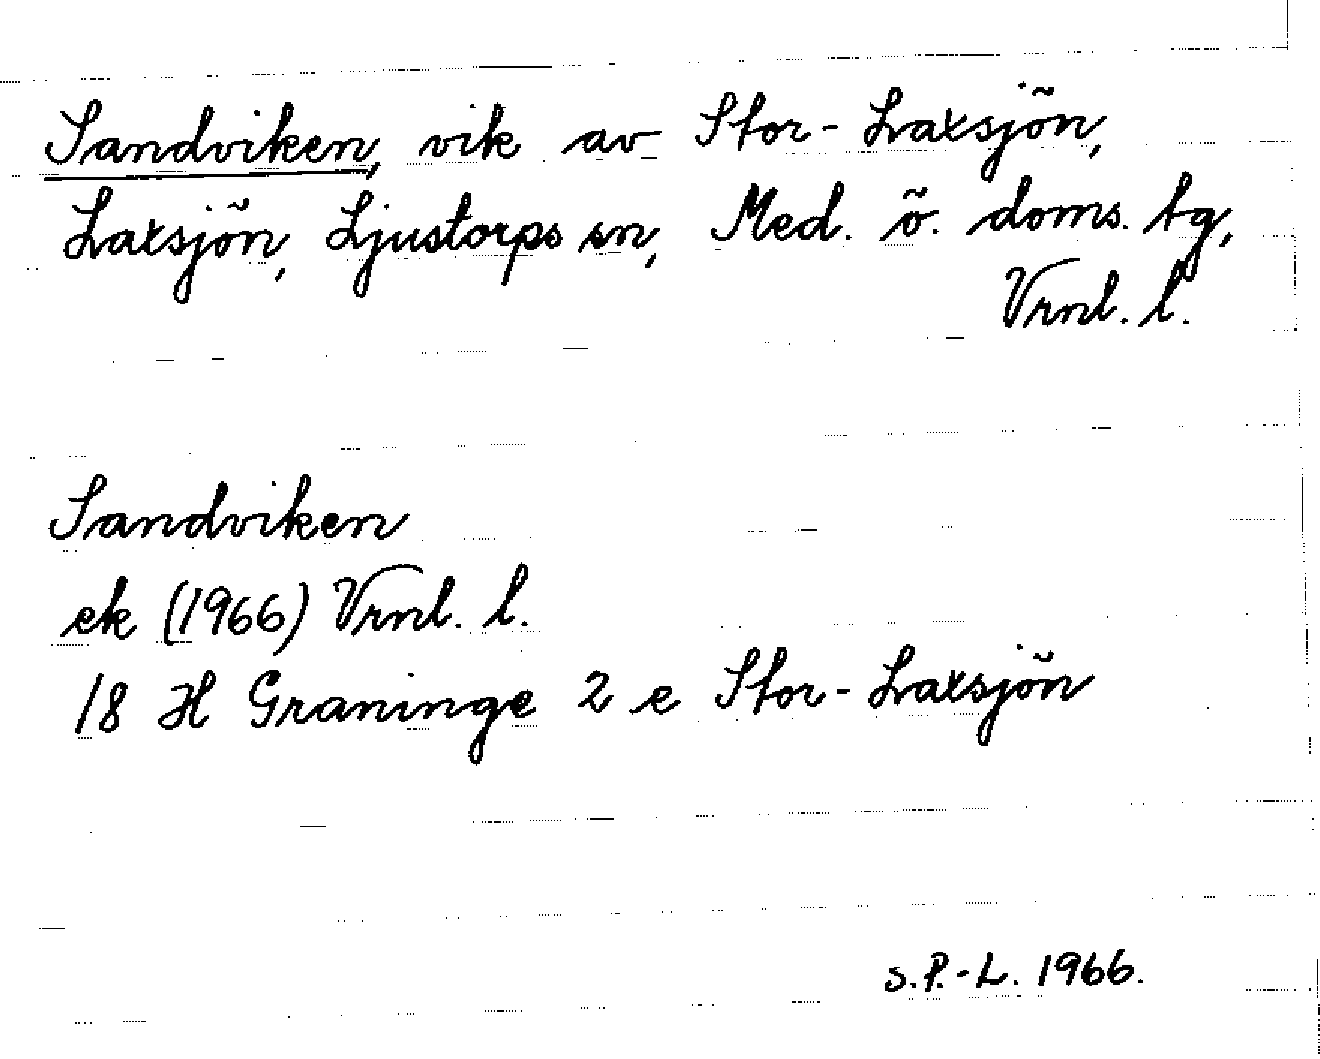 Sandviken, vik av Stor-Laxsjön,
Laxsjön, Ljustorps sn, Med. ö. doms. tg,
Vrnl. l.
Sandviken
ek (1966) Vrnl. l.
18 H Graninge 2 e Stor-Laxsjön
S.P.-L. 1966.